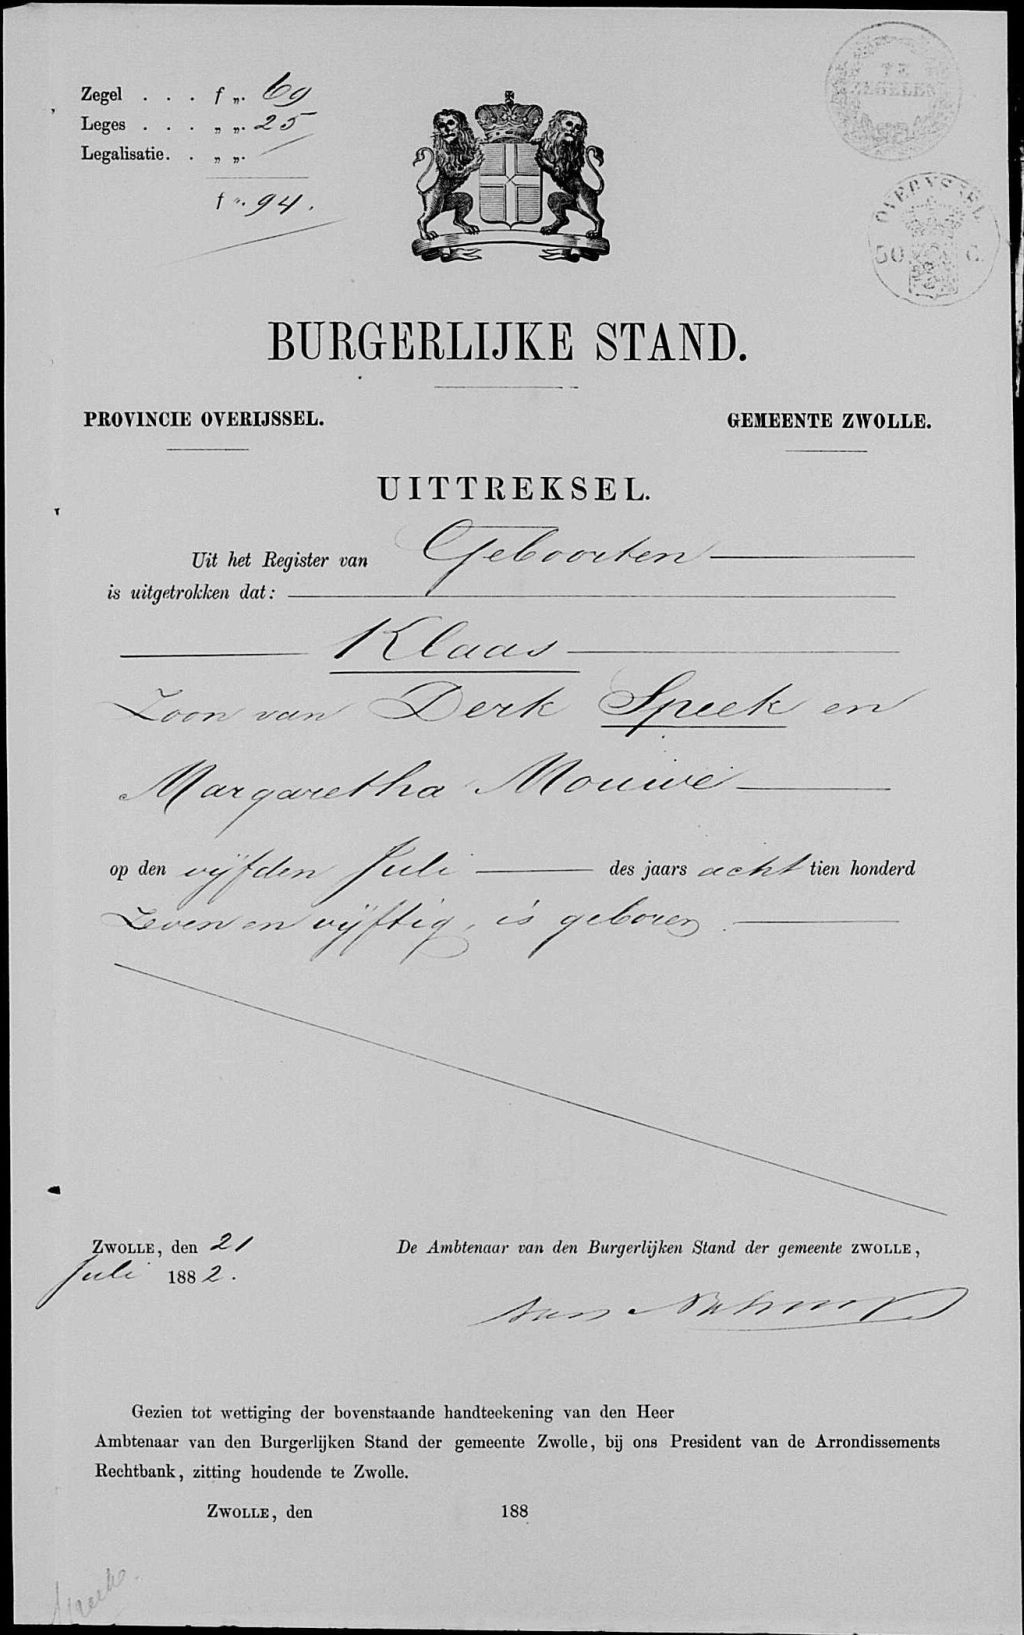 Zegel . . . f „. 69
Leges . . . „ „. 25
Legalisatie. . „ „.
f „. 94.
TE
ZEGELEN
OVERYSSEL
50 C
BURGERLIJKE STAND.
PROVINCIE OVERIJSSEL.
GEMEENTE ZWOLLE.
UITTREKSEL.
Uit het Register van Geboorten
is uitgetrokken dat:
Klaas
Zoon van Derk Speek en
Margaretha Mouwe
op den vijfden Juli des jaars acht tien honderd
Zeven en vijftig, is geboren.
ZWOLLE, den 21
Juli 1882.
De Ambtenaar van den Burgerlijken Stand der gemeente ZWOLLE,
Gezien tot wettiging der bovenstaande handteekening van den Heer
Ambtenaar van den Burgerlijken Stand der gemeente Zwolle, bij ons President van de Arrondissements
Rechtbank, zitting houdende te Zwolle.
ZWOLLE, den 188